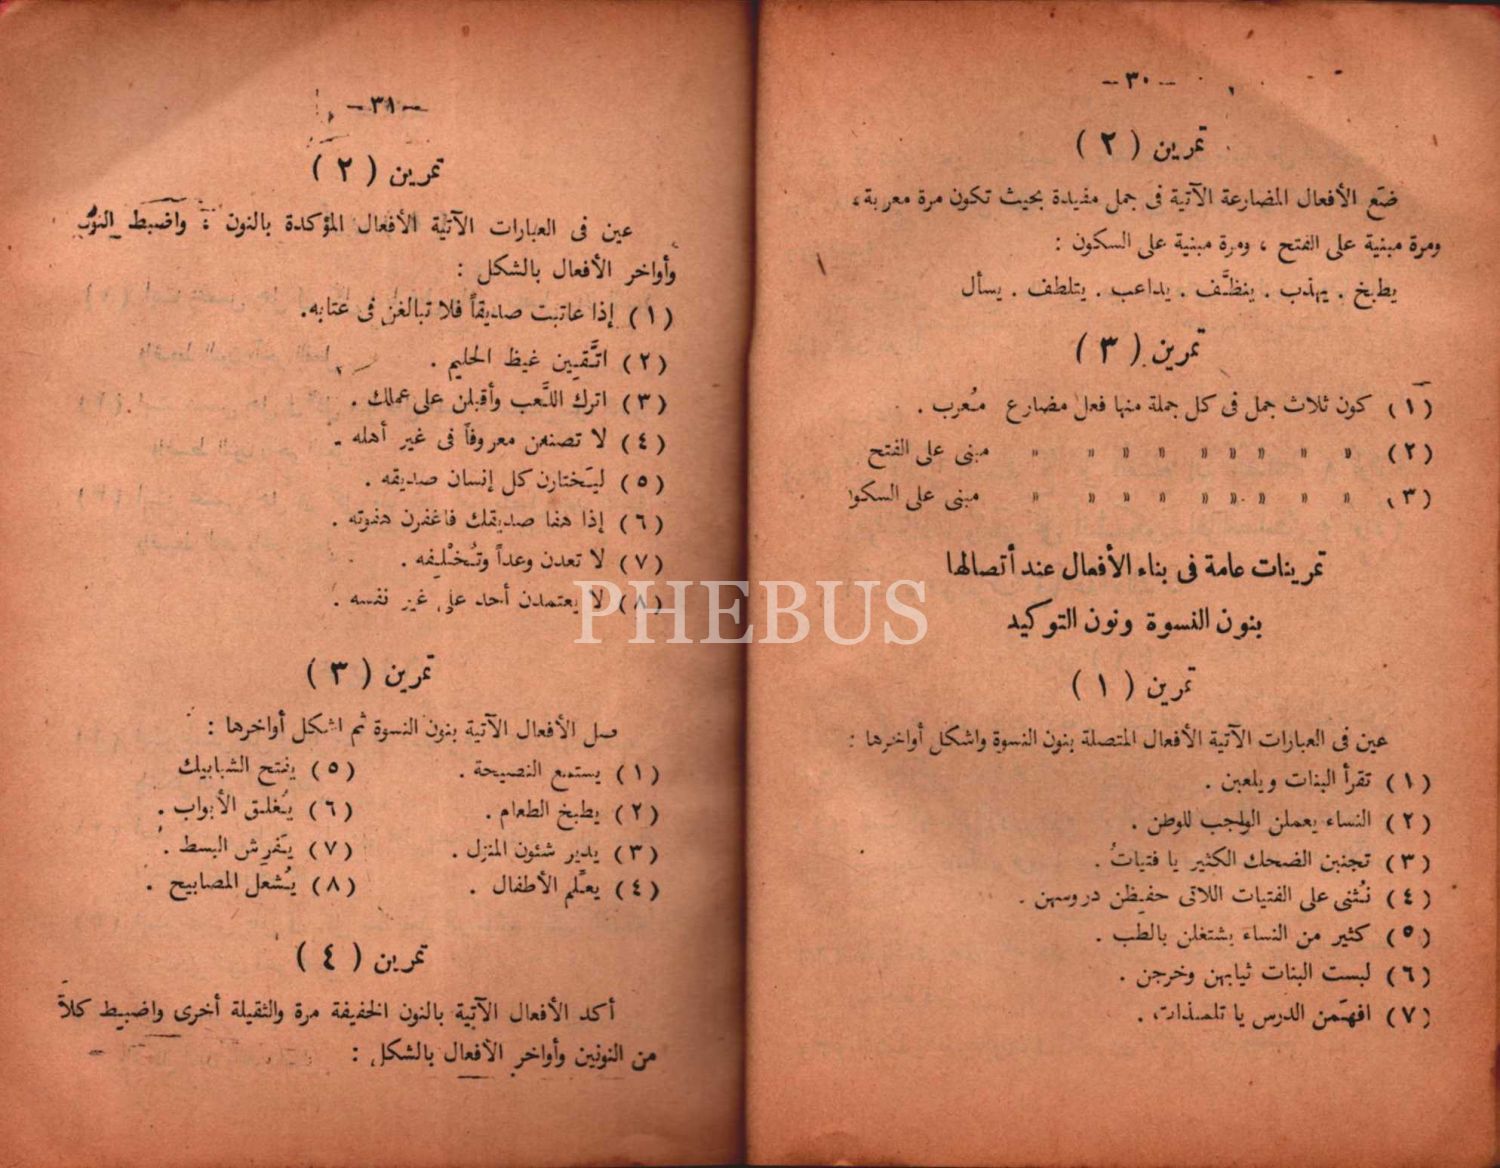 — ٣٠ —
تمرين ( ٢ )
ضع الأفعال المضارعة الآتية فى جمل مفيدة بحيث تكون مرة معربة،
ومرة مبنية على الفتح ، ومرة مبنية على السكون :
يطبخ . يهذب . ينظَّف . يداعب . يتلطف . يسأل
تمرين ( ٣ )
( ١ ) كون ثلاث جمل فى كل جملة منها فعل مضارع معُرب .
( ٢ ) » » » » » » » » » مبنى على الفتح
( ٣ ) » » » » » » » » » مبنى على السكو
تمرينات عامة فى بناء الأفعال عند أتصالها
بنون النسوة ونون التوكيد
تمرين ( ١ )
عين فى العبارات الآتية الأفعال المتصلة بنون النسوة واشكل أواخرها :
( ١ ) تقرأ البنات ويلعبن .
( ٢ ) النساء يعملن الواجب للوطن .
( ٣ ) تجنبن الضحك الكثير يا فتياتُ .
( ٤ ) نُثنى على الفتيات اللاتى حفيظن دروسهن .
( ٥ ) كثير من النساء يشتغلن بالطب .
( ٦ ) لبست البنات ثيابهن وخرجن .
( ٧ ) افهمن الدرس يا تلميذات .
— ٣١ —
تمرين ( ٢ )
عين فى العبارات الآتية الأفعال المؤكدة بالنون : واضبط النون
وأواخر الأفعال بالشكل :
( ١ ) إذا عاتبت صديقاً فلا تبالغن فى عتابه.
( ٢ ) اتَّقيين غيظ الحليم .
( ٣ ) اترك اللَّعب وأقبلن على عملك .
( ٤ ) لا تصنعن معروفاً فى غير أهله .
( ٥ ) ليَختارن كل إنسان صديقه .
( ٦ ) إذا هفا صديقك فاغفرن هفوته .
( ٧ ) لا تعدن وعداً وتُخْلِفه .
( ٨ ) لا يعتمدن أحد على غير نفسه .
تمرين ( ٣ )
صل الأفعال الآتية بنون النسوة ثم اشكل أواخرها :
( ١ ) يستمع النصيحة . ( ٥ ) يفتح الشبابيك
( ٢ ) يطبخ الطعام . ( ٦ ) يُغلق الأبواب .
( ٣ ) يدير شئون المنزل . ( ٧ ) يَفرِش البسط .
( ٤ ) يعلّم الأطفال . ( ٨ ) يُشعل المصابيح .
تمرين ( ٤ )
أكد الأفعال الآتية بالنون الخفيفة مرة والثقيلة أخرى واضبط كلاً
من النونين وأواخر الأفعال بالشكل :
PHEBUS